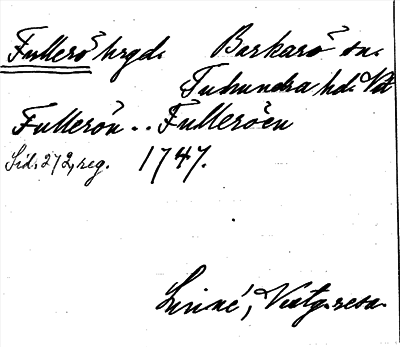 Fullerö hrgd. Barkarö sn.
Tuhundra hd. Vstm
Fullerön .. Fulleröen
Sid. 272, reg. 1747.
Linné, Västg. resa.